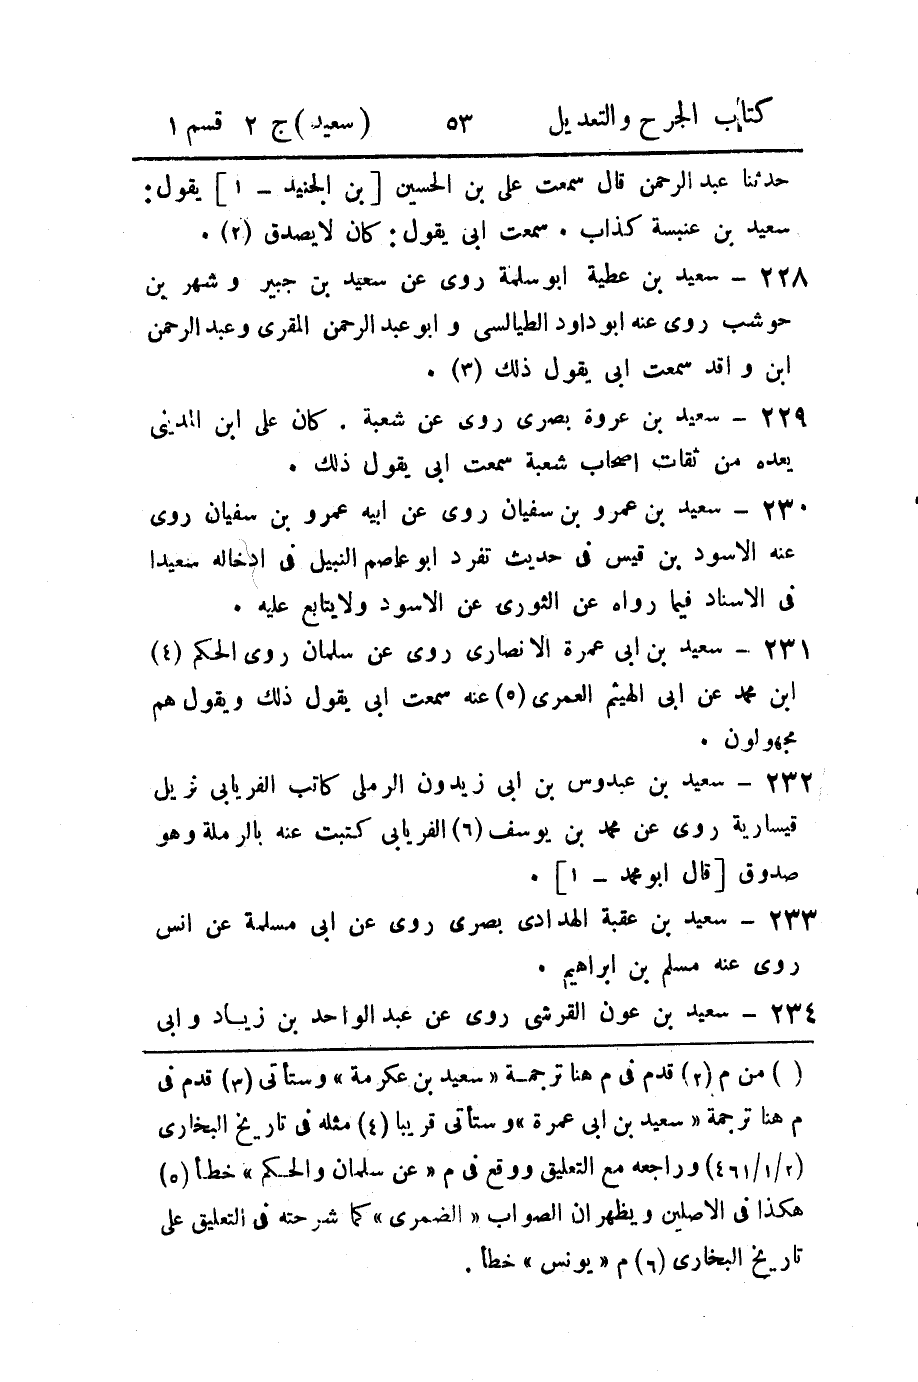 كتاب الجرح والتعديل ٥٣ (سعيد) ج ٢ قسم ١
حدثنا عبد الرحمن قال سمعت على بن الحسين [بن الجنيد - ١] يقول:
سعيد بن عنبسة كذاب . سمعت ابى يقول: كان لا يصدق (٢) .
٢٢٨ - سعيد بن عطية ابو سلمة روى عن سعيد بن جبير و شهر بن
حوشب روى عنه ابو داود الطيالسى و ابو عبد الرحمن المقرى و عبد الرحمن
ابن و اقد سمعت ابى يقول ذلك (٣) .
٢٢٩ - سعيد بن عروة بصرى روى عن شعبة . كان على ابن المدينى
يعده من ثقات اصحاب شعبة سمعت ابى يقول ذلك .
٢٣٠ - سعيد بن عمرو بن سفيان روى عن ابيه عمرو بن سفيان روى
عنه الاسود بن قيس فى حديث تفرد ابو عاصم النبيل فى ادخاله سعيدا
فى الاسناد فيما رواه عن الثورى عن الاسود ولا يتابع عليه .
٢٣١ - سعيد بن ابى عمرة الانصارى روى عن سلمان روى الحكم (٤)
ابن محمد عن ابى الهيثم العمرى (٥) عنه سمعت ابى يقول ذلك ويقول هم
مجهولون .
٢٣٢ - سعيد بن عبدوس بن ابى زيدون الرملى كاتب الفريابى نزيل
قيسارية روى عن محمد بن يوسف (٦) الفريابى كتبت عنه بالرملة وهو
صدوق [قال ابو محمد - ١] .
٢٣٣ - سعيد بن عقبة الهدادى بصرى روى عن ابى مسلمة عن انس
روى عنه مسلم بن ابراهيم .
٢٣٤ - سعيد بن عون القرشى روى عن عبد الواحد بن زياد و ابى
( ) من م (٢) قدم فى م هنا ترجمة « سعيد بن عكرمة » وستأتى (٣) قدم فى
م هنا ترجمة « سعيد بن ابى عمرة » وستأتى قريبا (٤) مثله فى تاريخ البخارى
(٤٦١/١/٢) وراجعه مع التعليق ووقع فى م « عن سلمان والحكم » خطأ (٥)
هكذا فى الاصلين ويظهر ان الصواب « الضمرى » كما شرحته فى التعليق على
تاريخ البخارى (٦) م « يونس » خطأ .